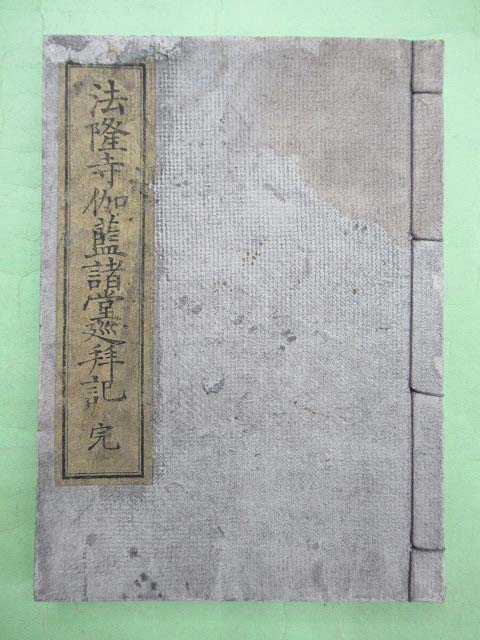 法隆寺伽藍諸堂廵拜記 完